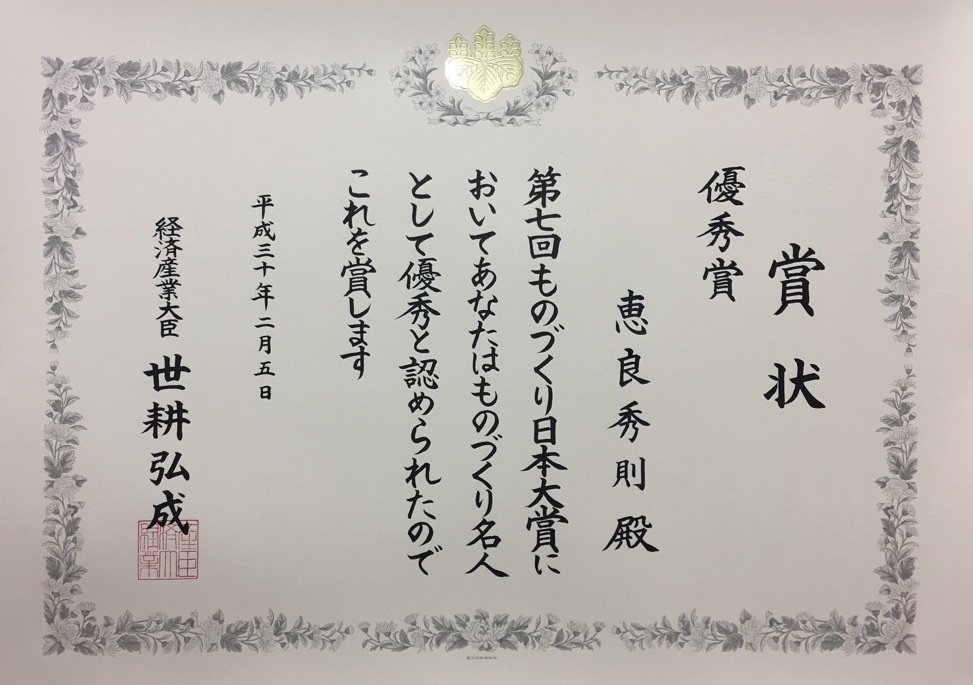 賞状
優秀賞
恵良秀則殿
第七回ものづくり日本大賞に
おいてあなたはものづくり名人
として優秀と認められたので
これを賞します
平成三十年二月五日
経済産業大臣 世耕弘成